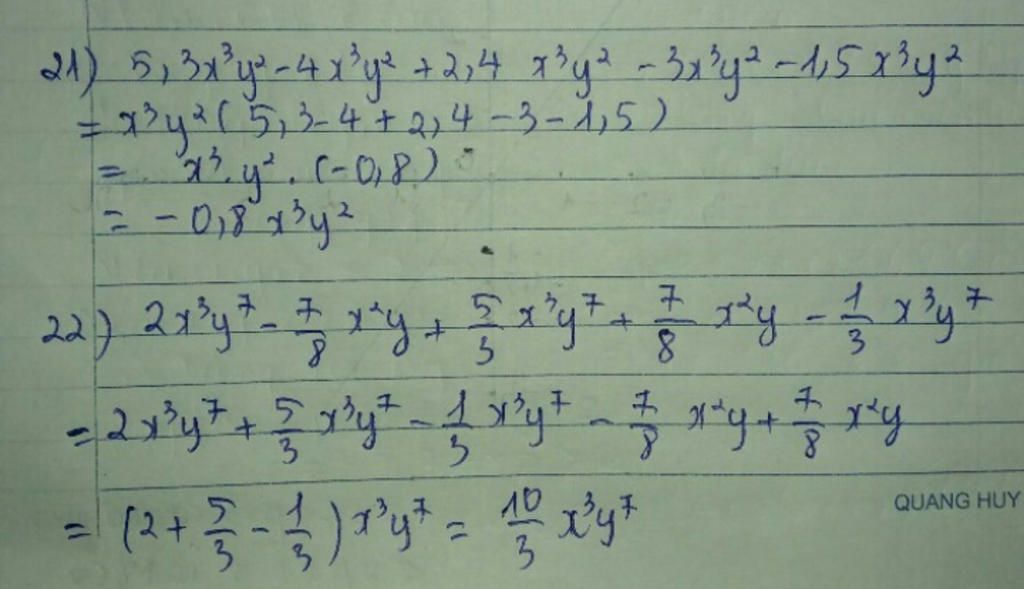 21) 5,3x³y² - 4x³y² + 2,4 x³y² - 3x³y² - 1,5 x³y²
= x³y² ( 5,3 - 4 + 2,4 - 3 - 1,5 )
= x³. y² . (-0,8)
= - 0,8 x³y²
22) 2x³y⁷ - 7/8 x²y + 5/3 x³y⁷ + 7/8 x²y - 1/3 x³y⁷
= 2x³y⁷ + 5/3 x³y⁷ - 1/3 x³y⁷ - 7/8 x²y + 7/8 x²y
= (2 + 5/3 - 1/3) x³y⁷ = 10/3 x³y⁷
QUANG HUY